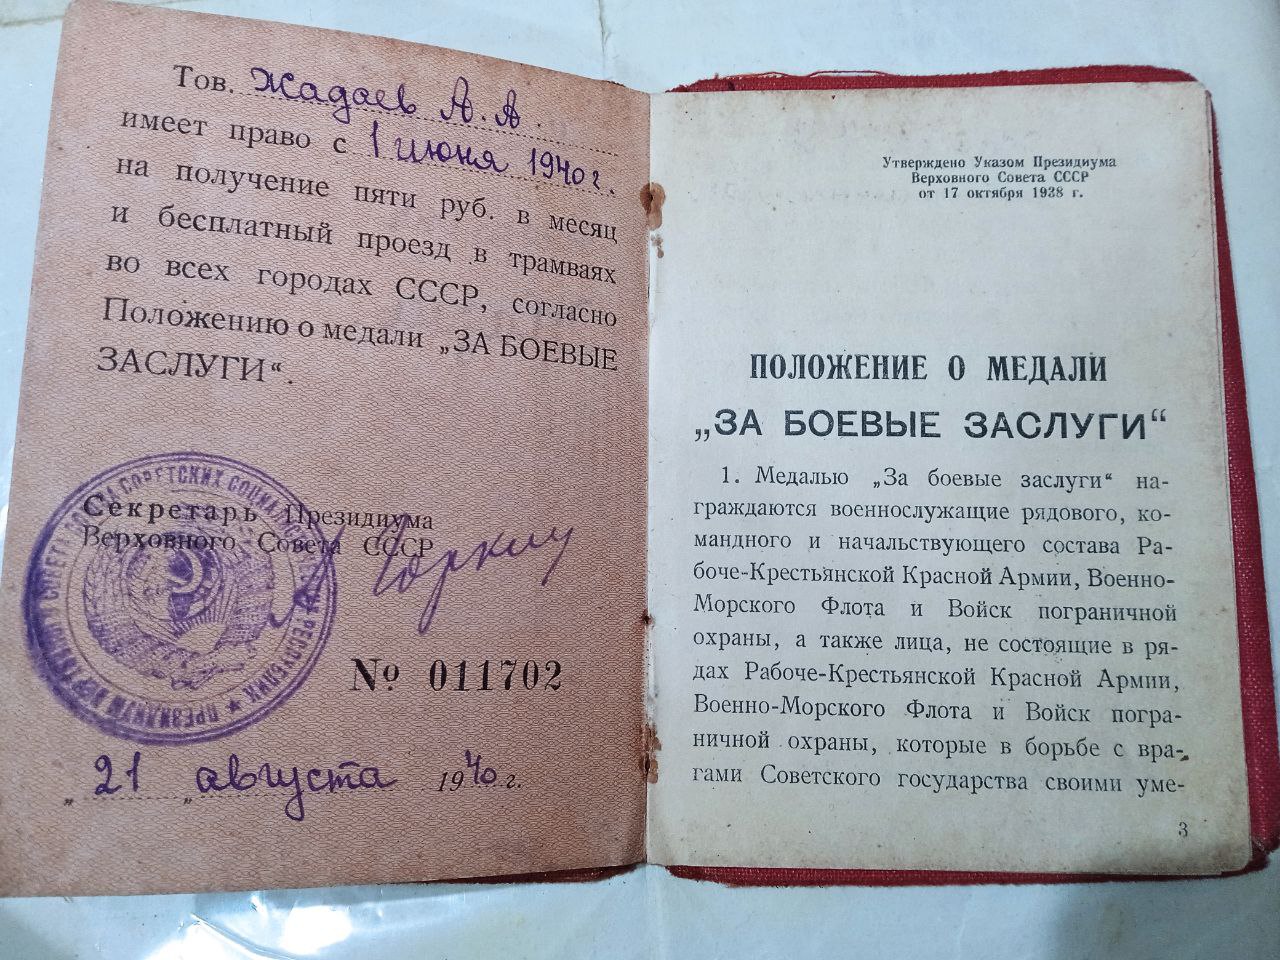 Тов. Жадаев А. А.
имеет право с 1 июня 1940 г.
на получение пяти руб. в месяц
и бесплатный проезд в трамваях
во всех городах СССР, согласно
Положению о медали „ЗА БОЕВЫЕ
ЗАСЛУГИ“.
Секретарь Президиума
Верховного Совета СССР
№ 011702
„21 „ августа 1940 г.
Утверждено Указом Президиума
Верховного Совета СССР
от 17 октября 1938 г.
ПОЛОЖЕНИЕ О МЕДАЛИ
„ЗА БОЕВЫЕ ЗАСЛУГИ“
1. Медалью „За боевые заслуги“ на-
граждаются военнослужащие рядового, ко-
мандного и начальствующего состава Ра-
боче-Крестьянской Красной Армии, Военно-
Морского Флота и Войск пограничной
охраны, а также лица, не состоящие в ря-
дах Рабоче-Крестьянской Красной Армии,
Военно-Морского Флота и Войск погра-
ничной охраны, которые в борьбе с вра-
гами Советского государства своими уме-
3